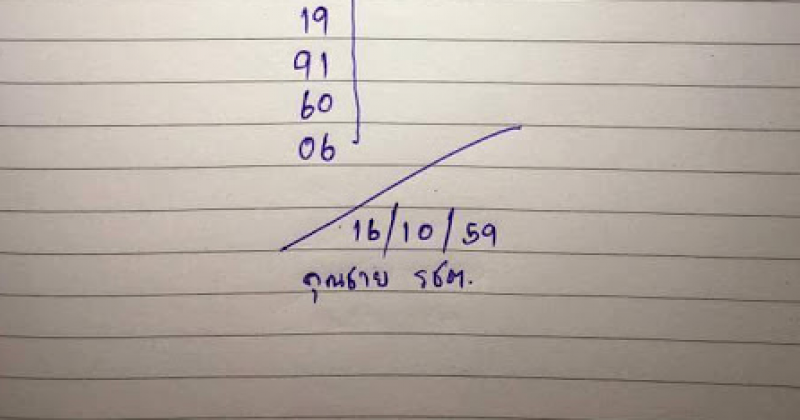 19
91
60
06
16/10/59
คุณชาย รชต.